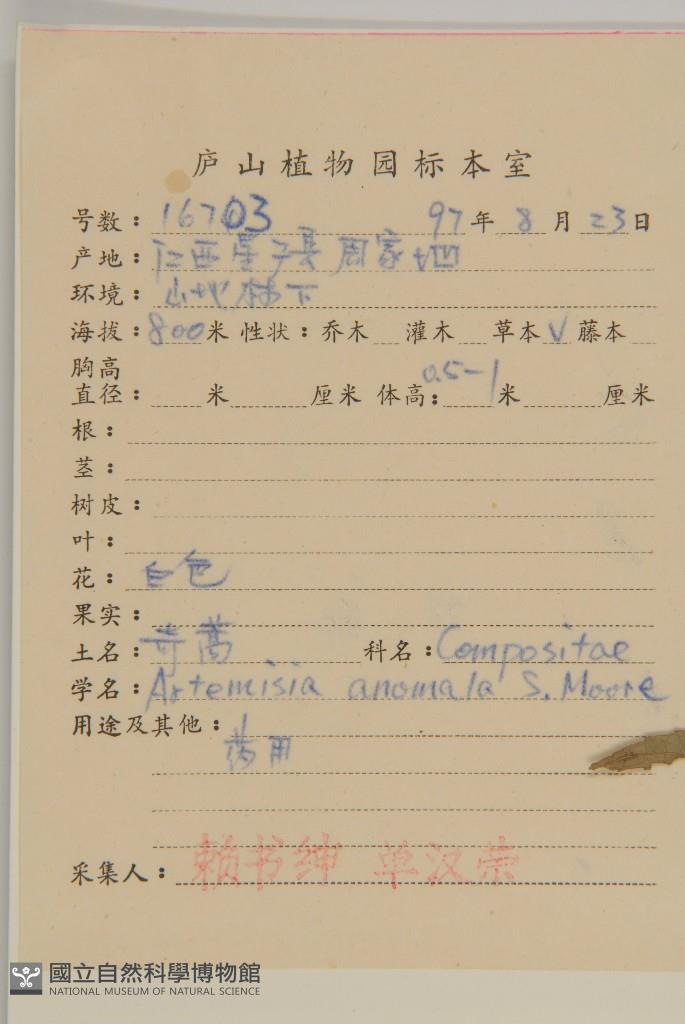 庐山植物园标本室
号数：16703 97年8月23日
产地：江西星子县周家地
环境：山地林下
海拔：800米 性状：乔木 灌木 草本V 藤本
胸高
直径： 米 厘米 体高：0.5-1米 厘米
根：
茎：
树皮：
叶：
花：白色
果实：
土名：奇蒿 科名：Compositae
学名：Artemisia anomala S. Moore
用途及其他：
药用
采集人：赖书绅 单汉荣
國立自然科學博物館
NATIONAL MUSEUM OF NATURAL SCIENCE